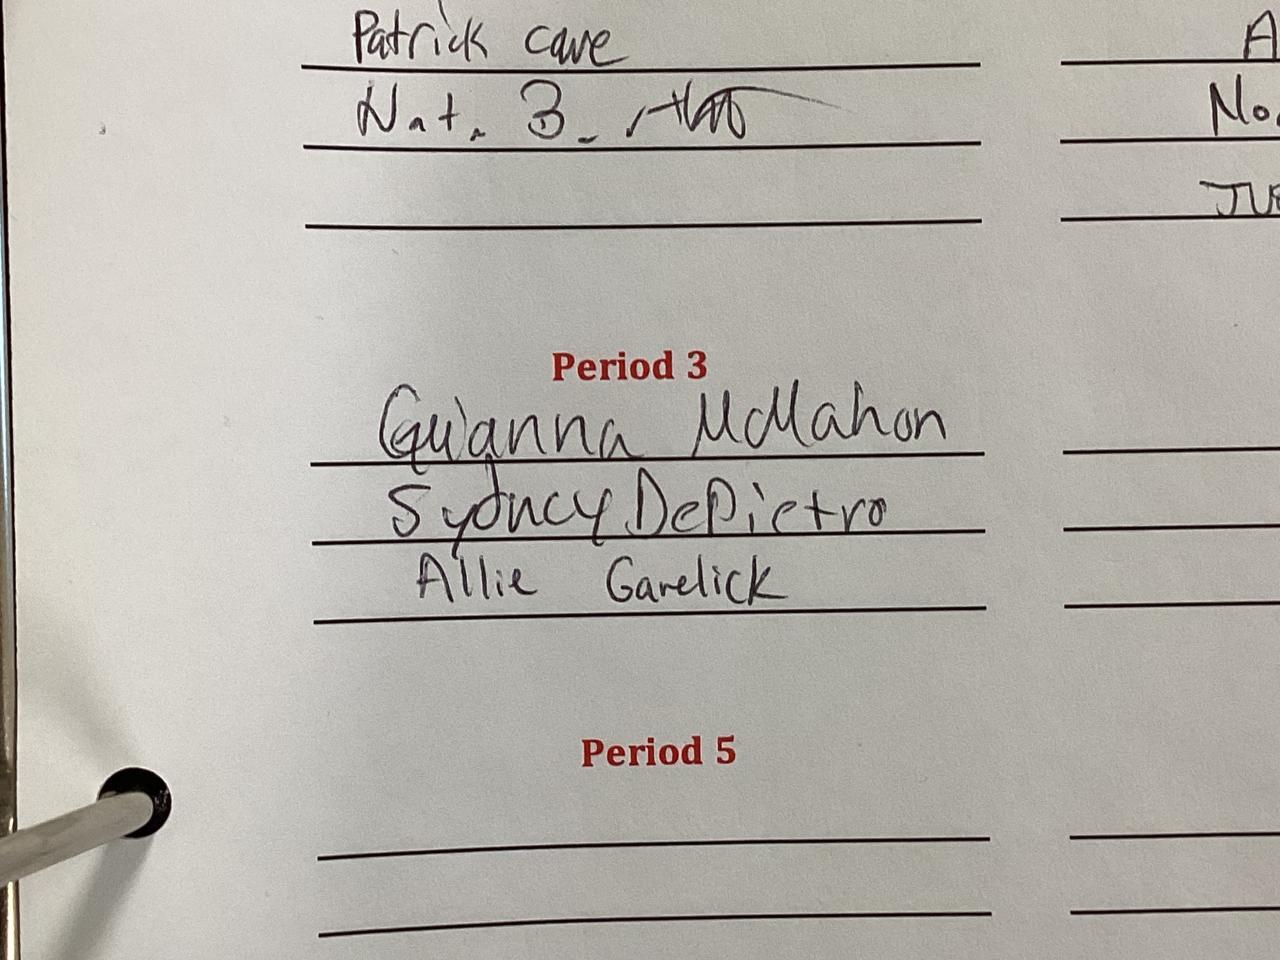 Patrick Cave
A
Nat. B.
Mo
JUS
Period 3
Guianna McMahon
Sydney DePietro
Allie Garelick
Period 5